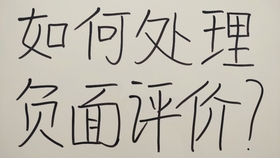 如何处理
负面评价?